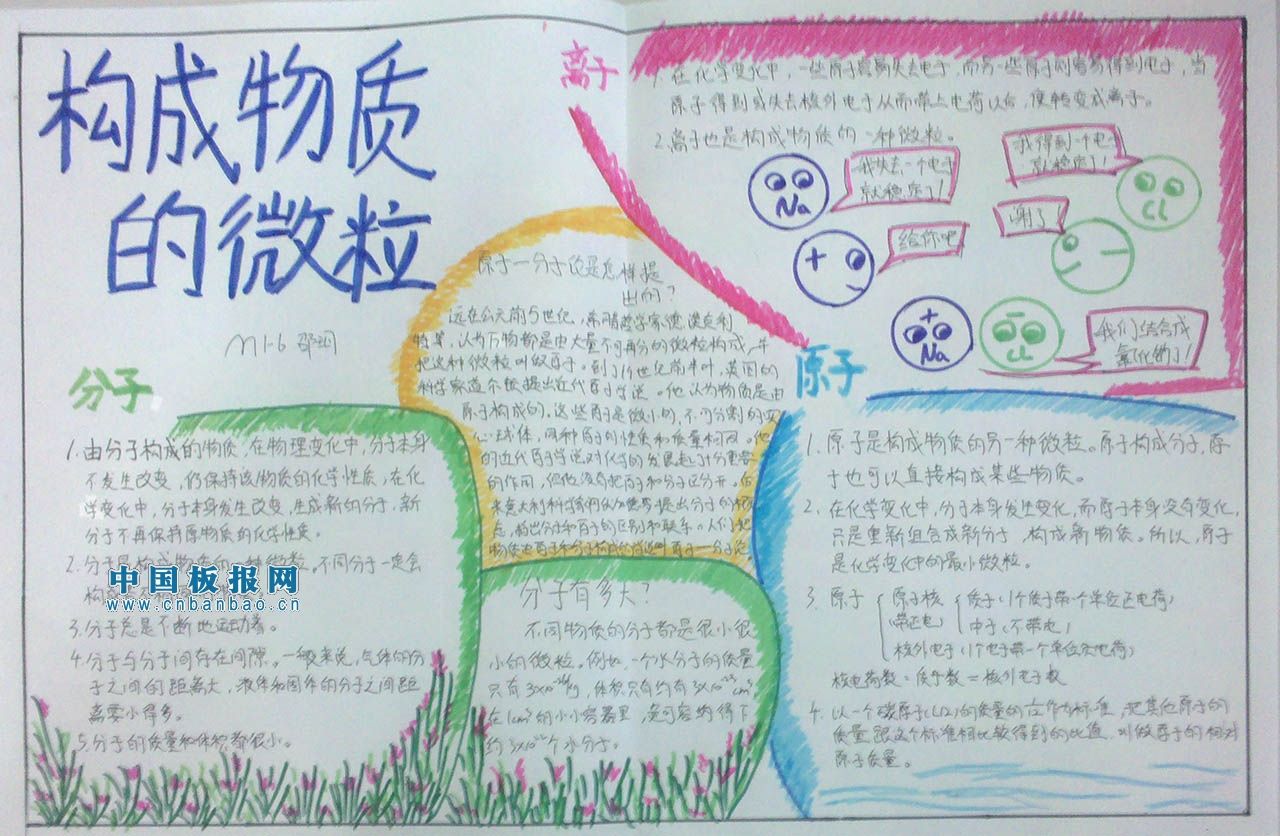 构成物质
的微粒
M1-6
分子
1.由分子构成的物质，在物理变化中，分子本身
不发生改变，仍保持该物质的化学性质，在化
学变化中，分子本身发生改变，生成新的分子，新
分子不再保持原物质的化学性质。
2.分子是构成物质的一种微粒。不同分子一定会
构成
3.分子总是不断地运动着。
4.分子与分子间存在间隙。一般来说，气体的分
子之间的距离大，液体和固体的分子之间距
离要小得多。
5.分子的质量和体积都很小。
中国板报网
www.cnbanbao.cn
原子一分子论是怎样提
出的？
远在公元前5世纪，希腊哲学家德谟克利
特等，认为万物都是由大量不可再分的微粒构成，并
把这种微粒叫做原子。到了19世纪前半叶，英国的
科学家道尔顿提出近代原子学说。他认为物质是由
原子构成的，这些原子是微小的，不可分割的实
心球体，同种原子的性质和质量相同。他
的近代原子学说对化学的发展起了十分重要
的作用，但他没有把原子和分子区分开。后
来意大利科学家阿伏加德罗提出分子的概
念，指出分子和原子的区别和联系。人们把
物质由原子和分子构成的 原子一分子论
分子有多大？
不同物质的分子都是很小很
小的微粒。例如，一个水分子的质量
只有3×10⁻²⁶kg，体积只有约有3×10⁻²³cm³
在1cm³的小小容器里，竟可容纳得下
约3×10²²个水分子。
离子
1.在化学变化中，一些原子容易失去电子，而另一些原子则容易得到电子，当
原子得到或失去核外电子从而带上电荷以后，便转变成离子。
2.离子也是构成物质的一种微粒。
Na
我失去一个电子
就稳定了！
我得到一个电子
就稳定了！
Cl
+
给你吧
谢了
−
+
Na
−
Cl
我们结合成
氯化钠了！
原子
1.原子是构成物质的另一种微粒。原子构成分子，原
子也可以直接构成某些物质。
2.在化学变化中，分子本身发生变化，而原子本身没有变化，
只是重新组合成新分子，构成新物质。所以，原子
是化学变化中的最小微粒。
3.原子 { 原子核 { 质子（1个质子带一个单位正电荷）
带正电 中子（不带电）
核外电子（1个电子带一个单位负电荷）
核电荷数＝质子数＝核外电子数
4.以一个碳原子(C12)的质量的1/12作为标准，把其他原子的
质量跟这个标准相比较得到的比值，叫做原子的相对
原子质量。